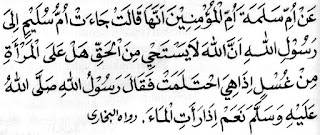 عَنْ أُمِّ سَلَمَةَ أُمِّ الْمُؤْمِنِيْنَ اَنَّهَا قَالَتْ جَاءَتْ اُمُّ سُلَيْمٍ اِلَى
رَسُوْلِ اللهِ اِنَّ اللهَ لَا يَسْتَحْيِيْ مِنَ الْحَقِّ هَلْ عَلَى الْمَرْأَةِ
مِنْ غُسْلٍ اِذَا هِيَ احْتَلَمَتْ فَقَالَ رَسُوْلُ اللهِ صَلَّى اللهُ
عَلَيْهِ وَسَلَّمَ نَعَمْ اِذَا رَأَتِ الْمَاءَ. رواه البخارى